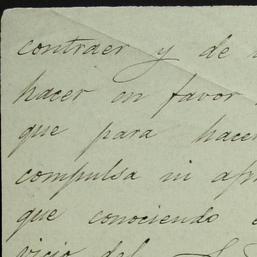 contraer y de
hacer en favor
que para hacer
compulsa ni
que conociendo
vicio del